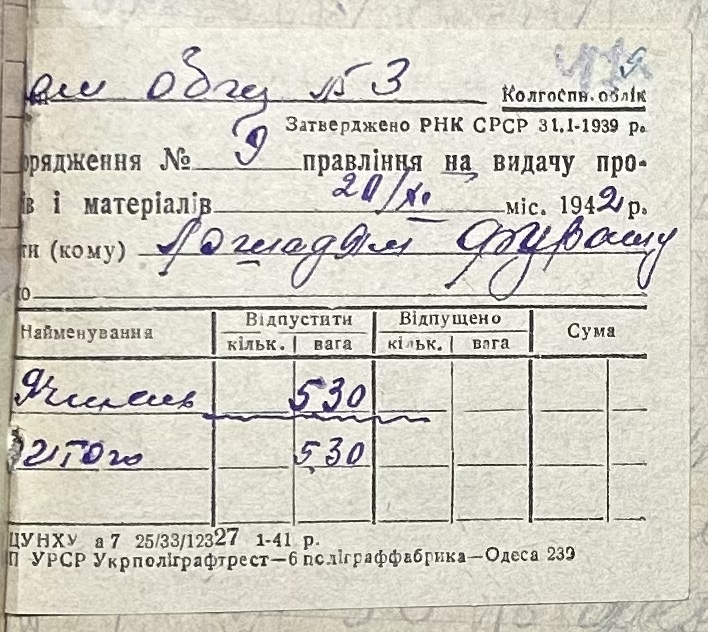 № 3
Колгоспн. облік
Затверджено РНК СРСР 31.I-1939 р.
орядження № 9 правління на видачу про-
ів і матеріалів 20/XI. міс. 1942 р.
ти (кому) Лошадям фуражу
о
Найменування Відпустити Відпущено Сума
кільк. вага кільк. вага
Ячмень 530
Итого 530
ЦУНХУ а 7 25/33/12327 1-41 р.
П УРСР Укрполіграфтрест—6 поліграффабрика—Одеса 239